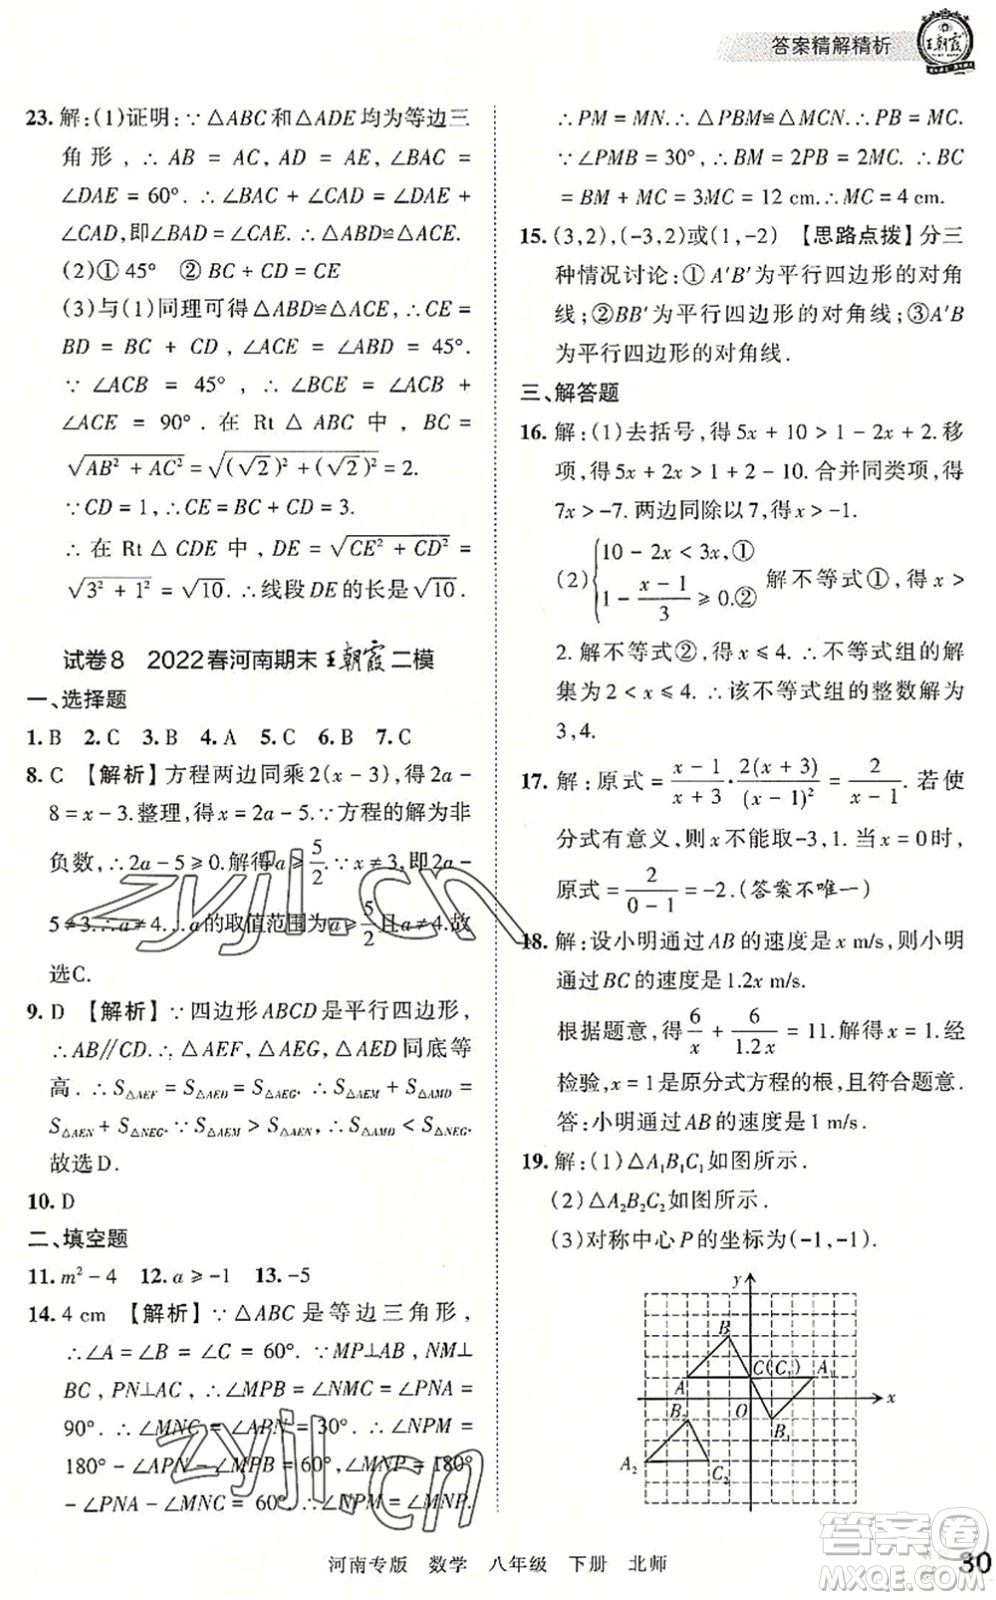 答案精解精析
王朝霞
23. 解:(1)证明:∵△ABC和△ADE均为等边三
角形,∴AB = AC, AD = AE, ∠BAC =
∠DAE = 60°. ∴∠BAC + ∠CAD = ∠DAE +
∠CAD,即∠BAD = ∠CAE. ∴△ABD≌△ACE.
(2)① 45° ② BC + CD = CE
(3)与(1)同理可得△ABD≌△ACE, ∴ CE =
BD = BC + CD, ∠ACE = ∠ABD = 45°.
∵ ∠ACB = 45°, ∴ ∠BCE = ∠ACB +
∠ACE = 90°. ∴ 在 Rt △ ABC 中, BC =
√(AB² + AC²) = √((√2)² + (√2)²) = 2.
∵ CD = 1, ∴ CE = BC + CD = 3.
∴ 在 Rt △ CDE 中, DE = √(CE² + CD²) =
√(3² + 1²) = √10. ∴线段DE的长是√10.
试卷8 2022春河南期末王朝霞二模
一、选择题
1. B 2. C 3. B 4. A 5. C 6. B 7. C
8. C 【解析】方程两边同乘2(x - 3),得2a -
8 = x - 3.整理,得x = 2a - 5.∵方程的解为非
负数,∴2a - 5 ≥ 0.解得a ≥ 5/2.∵x ≠ 3,即2a -
5 ≠ 3.∴a ≠ 4.∴a的取值范围为a ≥ 5/2且a ≠ 4.故
选C.
9. D 【解析】∵四边形ABCD是平行四边形,
∴AB∥CD. ∴△AEF, △AEG, △AED同底等
高. ∴S△AEF = S△AED = S△AEG. ∴S△AEM + S△AMD =
S△AEN + S△NEG. ∵S△AEM > S△AEN, ∴S△AMD < S△NEG.
故选D.
10. D
二、填空题
11. m² - 4 12. a ≥ -1 13. -5
14. 4 cm 【解析】∵△ABC是等边三角形,
∴∠A = ∠B = ∠C = 60°. ∵MP⊥AB, NM⊥
BC, PN⊥AC, ∴∠MPB = ∠NMC = ∠PNA =
90°. ∴∠MNC = ∠APN = 30°. ∴∠NPM =
180° - ∠APN - ∠MPB = 60°, ∠MNP = 180°
- ∠PNA - ∠MNC = 60°. ∴∠NPM = ∠MNP.
∴PM = MN. ∴△PBM≌△MCN. ∴PB = MC.
∵∠PMB = 30°, ∴BM = 2PB = 2MC. ∴BC
= BM + MC = 3MC = 12 cm. ∴MC = 4 cm.
15. (3,2),(-3,2)或(1,-2) 【思路点拨】分三
种情况讨论:①A′B′为平行四边形的对角
线;②BB′为平行四边形的对角线;③A′B
为平行四边形的对角线.
三、解答题
16. 解:(1)去括号,得5x + 10 > 1 - 2x + 2.移
项,得5x + 2x > 1 + 2 - 10.合并同类项,得
7x > -7.两边同除以7,得x > -1.
(2){10 - 2x < 3x,① 1 - (x - 1)/3 ≥ 0.② 解不等式①,得x >
2.解不等式②,得x ≤ 4.∴不等式组的解
集为2 < x ≤ 4.∴该不等式组的整数解为
3,4.
17. 解:原式 = (x - 1)/(x + 3) · 2(x + 3)/(x - 1)² = 2/(x - 1). 若使
分式有意义,则x不能取-3,1.当x = 0时,
原式 = 2/(0 - 1) = -2.(答案不唯一)
18. 解:设小明通过AB的速度是x m/s,则小明
通过BC的速度是1.2x m/s.
根据题意,得6/x + 6/1.2x = 11.解得x = 1.经
检验,x = 1是原分式方程的根,且符合题意.
答:小明通过AB的速度是1 m/s.
19. 解:(1)△A₁B₁C₁如图所示.
(2)△A₂B₂C₂如图所示.
(3)对称中心P的坐标为(-1,-1).
y
B
C(C₁)
A
A₁
O
x
B₂
B₁
A₂
C₂
zyjl.cn
zyjl.cn
答案圈
河南专版 数学 八年级 下册 北师
30